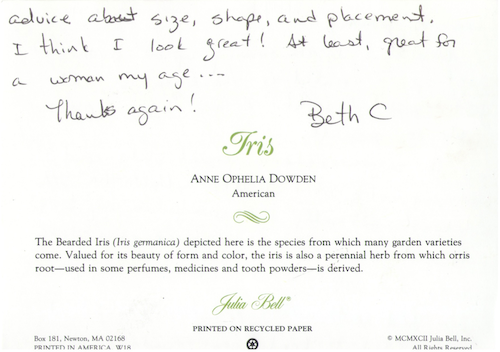 advice about size, shape, and placement.
I think I look great! At least, great for
a woman my age...
Thanks again!
Beth C
Iris
ANNE OPHELIA DOWDEN
American
The Bearded Iris (Iris germanica) depicted here is the species from which many garden varieties
come. Valued for its beauty of form and color, the iris is also a perennial herb from which orris
root—used in some perfumes, medicines and tooth powders—is derived.
Julia Bell®
PRINTED ON RECYCLED PAPER
Box 181, Newton, MA 02168
© MCMXCII Julia Bell, Inc.
PRINTED IN AMERICA W18
All Rights Reserved